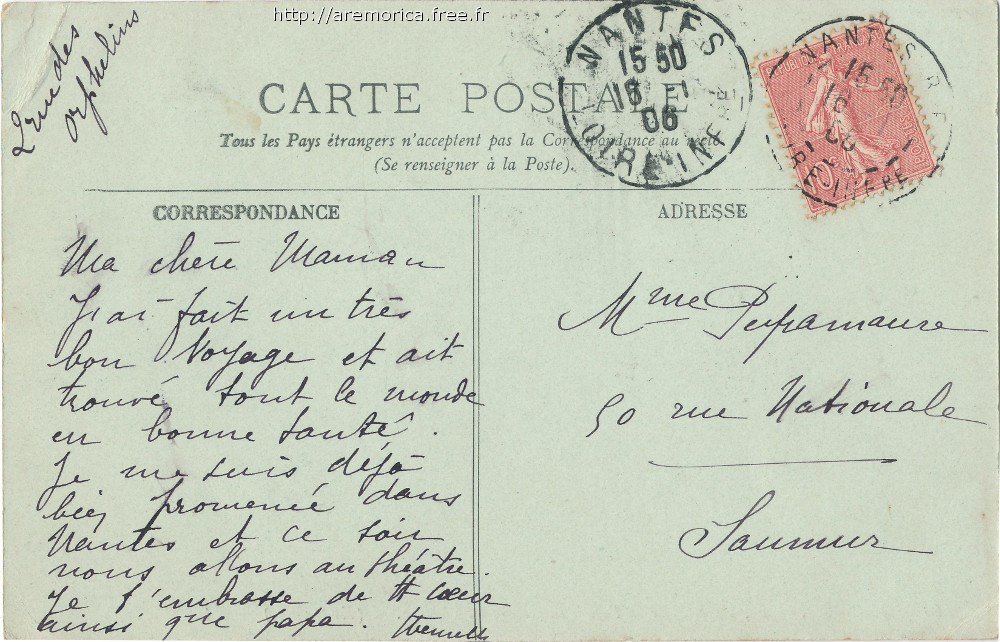 http://aremorica.free.fr
2 rue des
orphelins
CARTE POSTALE
Tous les Pays étrangers n'acceptent pas la Correspondance au recto
(Se renseigner à la Poste).
NANTES
15 50
16 - 1
06
LOIRE INFRE
NANTES R. P.
15 50
16
LOIRE INFRE
CORRESPONDANCE
ADRESSE
Ma chère Maman
J'ai fait un très
bon voyage et ait
trouvé tout le monde
en bonne santé.
Je me suis déjà
bien promené dans
Nantes et ce soir
nous allons au théâtre.
Je t'embrasse de tt cœur
ainsi que papa.
Mme
50 rue Nationale
Saumur